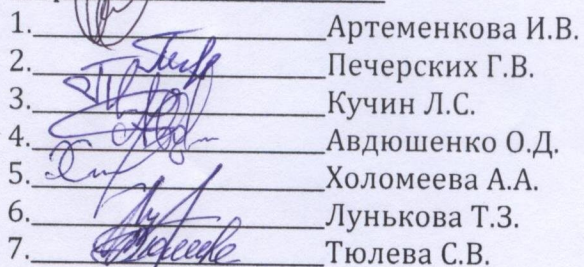 1. Артеменкова И.В.
2. Печерских Г.В.
3. Кучин Л.С.
4. Авдюшенко О.Д.
5. Холомеева А.А.
6. Лунькова Т.З.
7. Тюлева С.В.